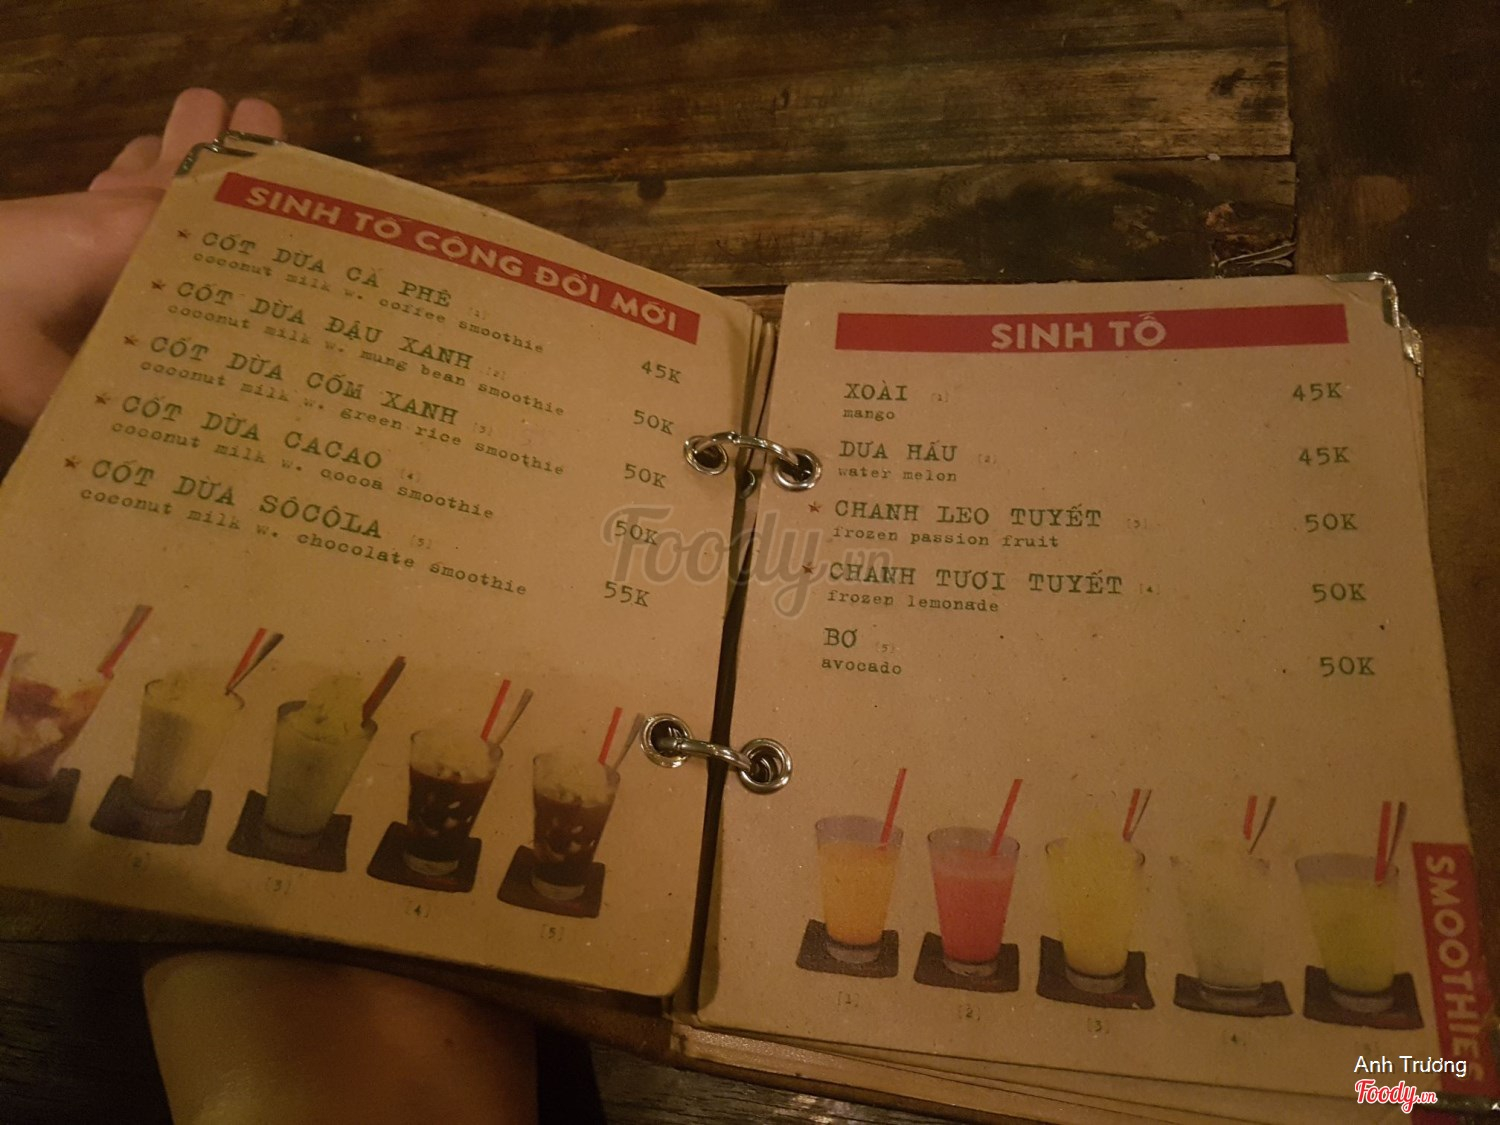 SINH TỐ CỘNG ĐỔI MỚI
★ CỐT DỪA CÀ PHÊ [1]
coconut milk w. coffee smoothie
45K
★ CỐT DỪA ĐẬU XANH [2]
coconut milk w. mung bean smoothie
50K
★ CỐT DỪA CỐM XANH [3]
coconut milk w. green rice smoothie
50K
★ CỐT DỪA CACAO [4]
coconut milk w. cocoa smoothie
50K
★ CỐT DỪA SÔCÔLA [5]
coconut milk w. chocolate smoothie
55K
[2] [3] [4] [5]
SINH TỐ
XOÀI [1] 45K
mango
DƯA HẤU [2] 45K
water melon
★ CHANH LEO TUYẾT [3] 50K
frozen passion fruit
★ CHANH TƯƠI TUYẾT [4] 50K
frozen lemonade
BƠ [5] 50K
avocado
[1] [2] [3] [4]
SMOOTHIES
Foody.vn
Anh Trương
Foody.vn